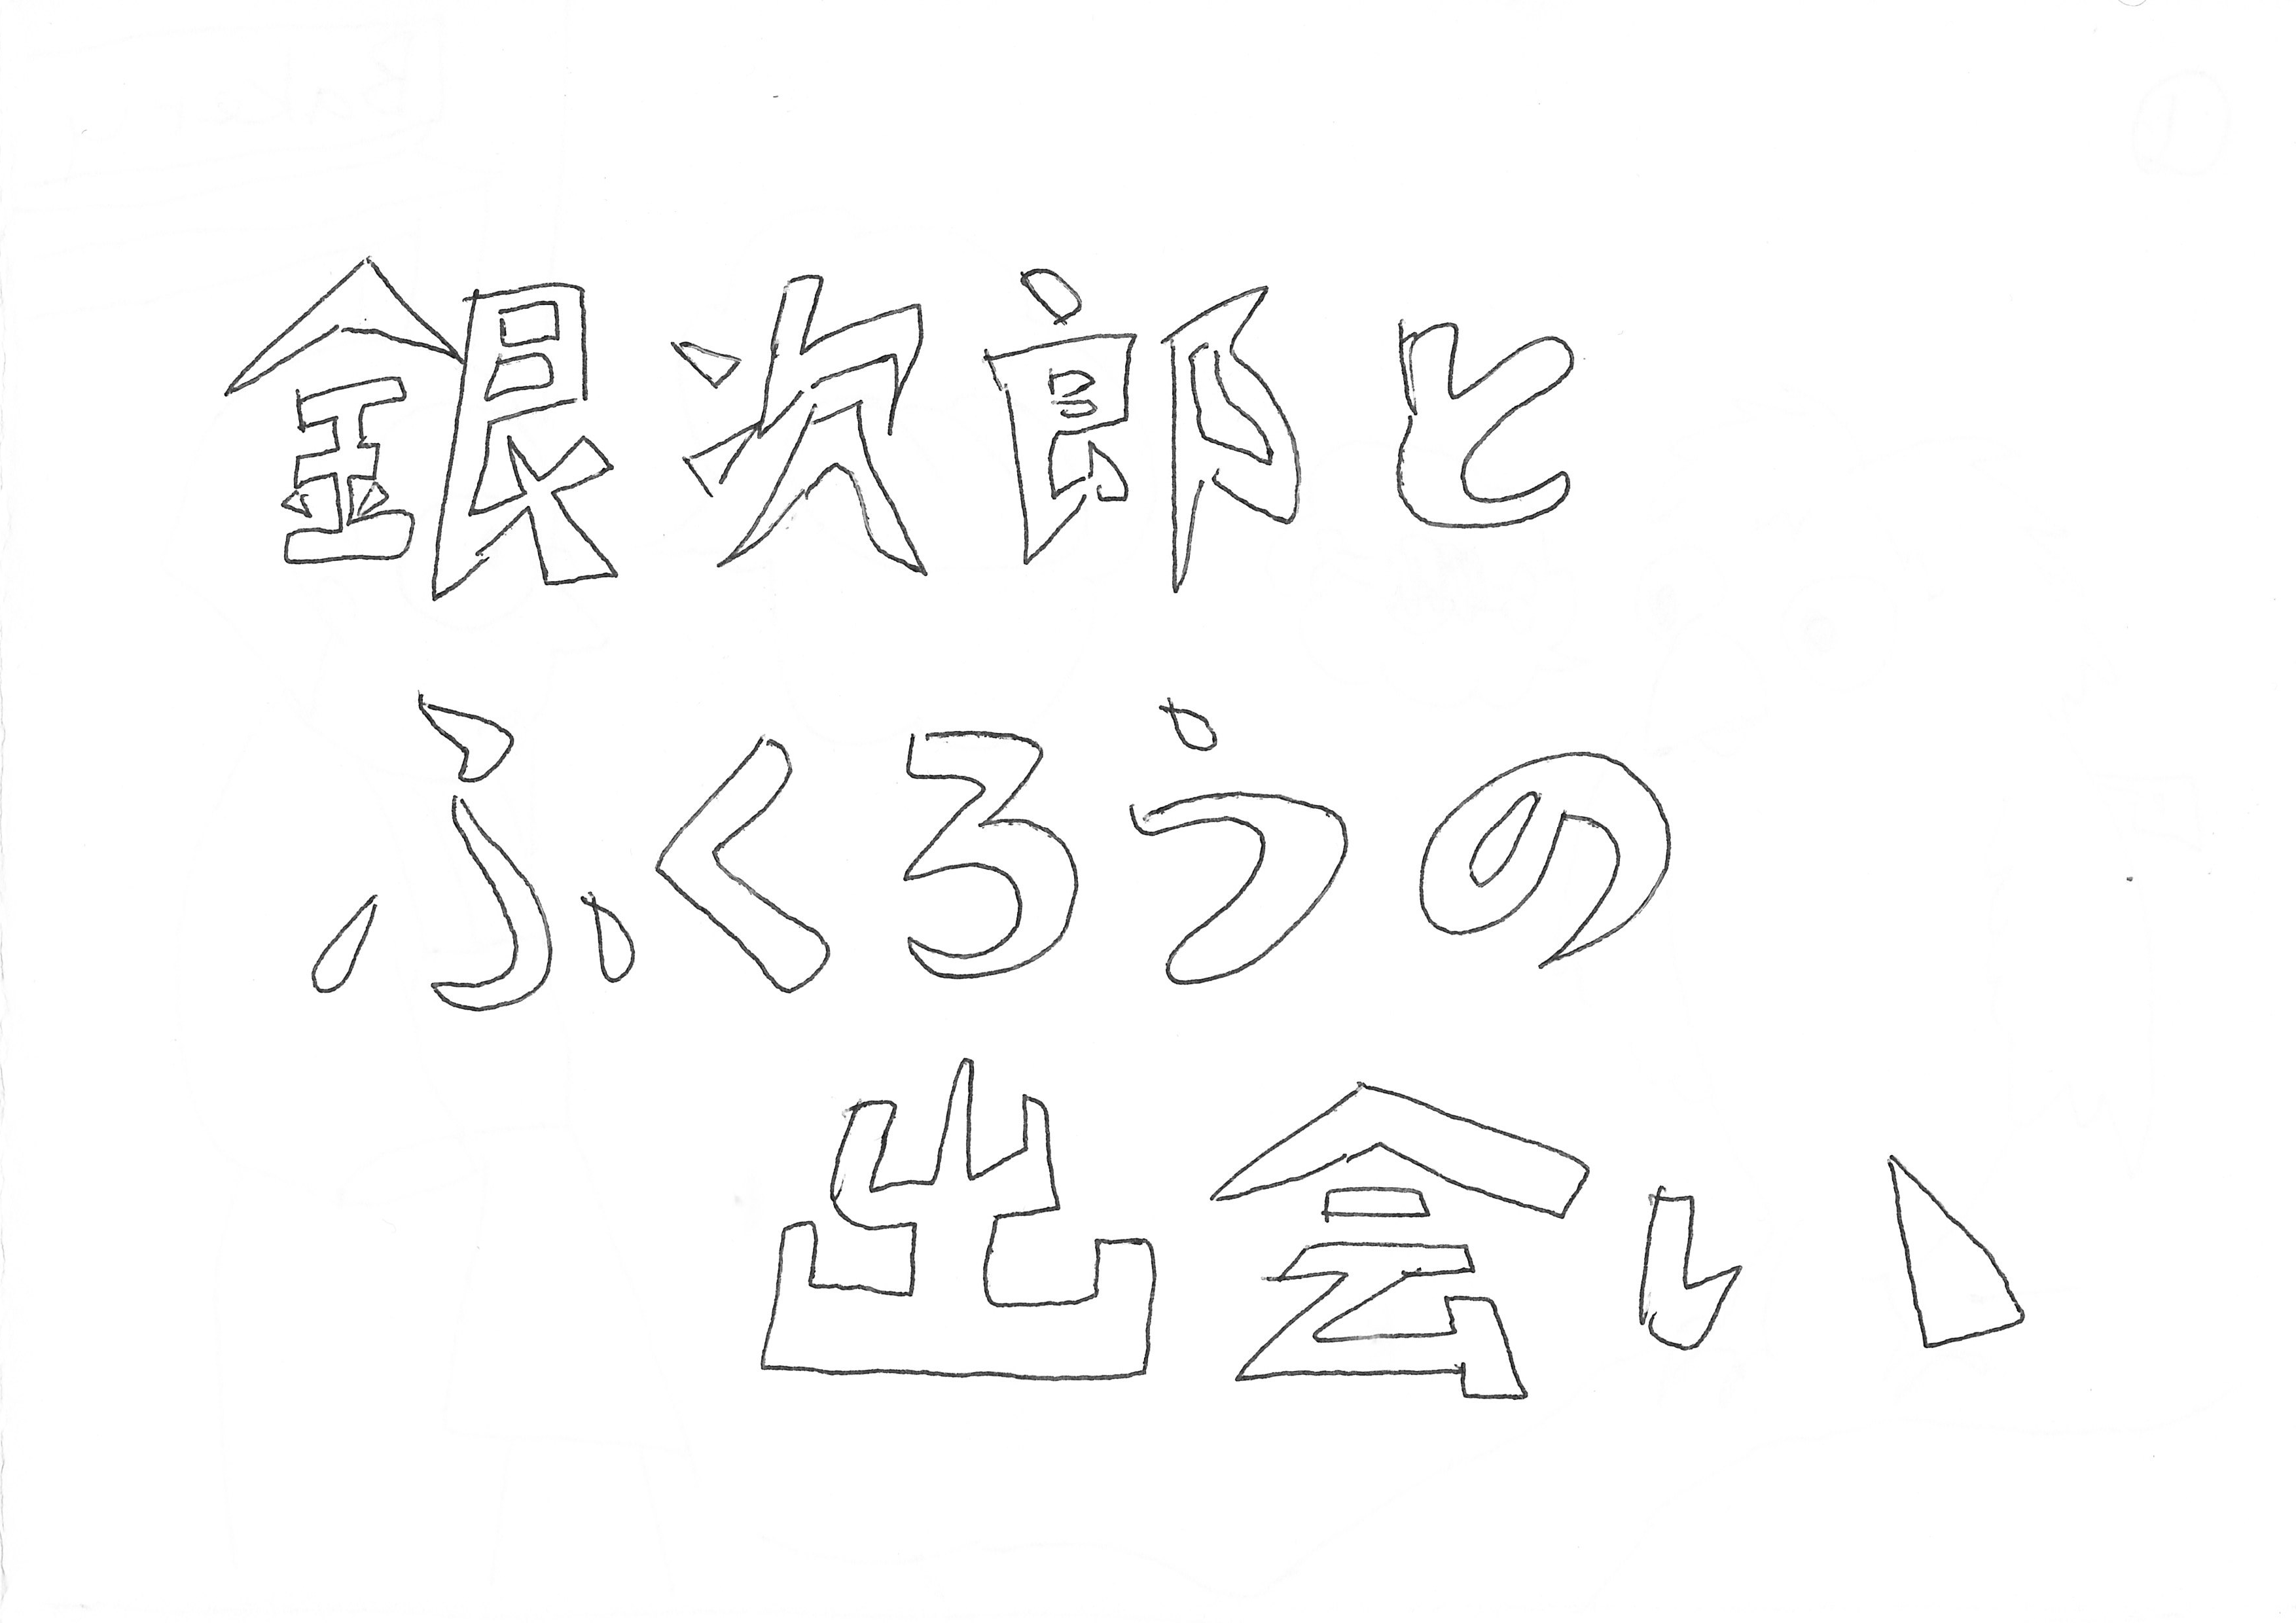 銀次郎と
ふくろうの
出会い